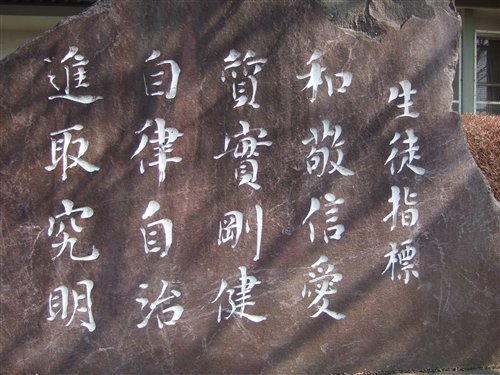 生徒指標
和敬信愛
質實剛健
自律自治
進取究明